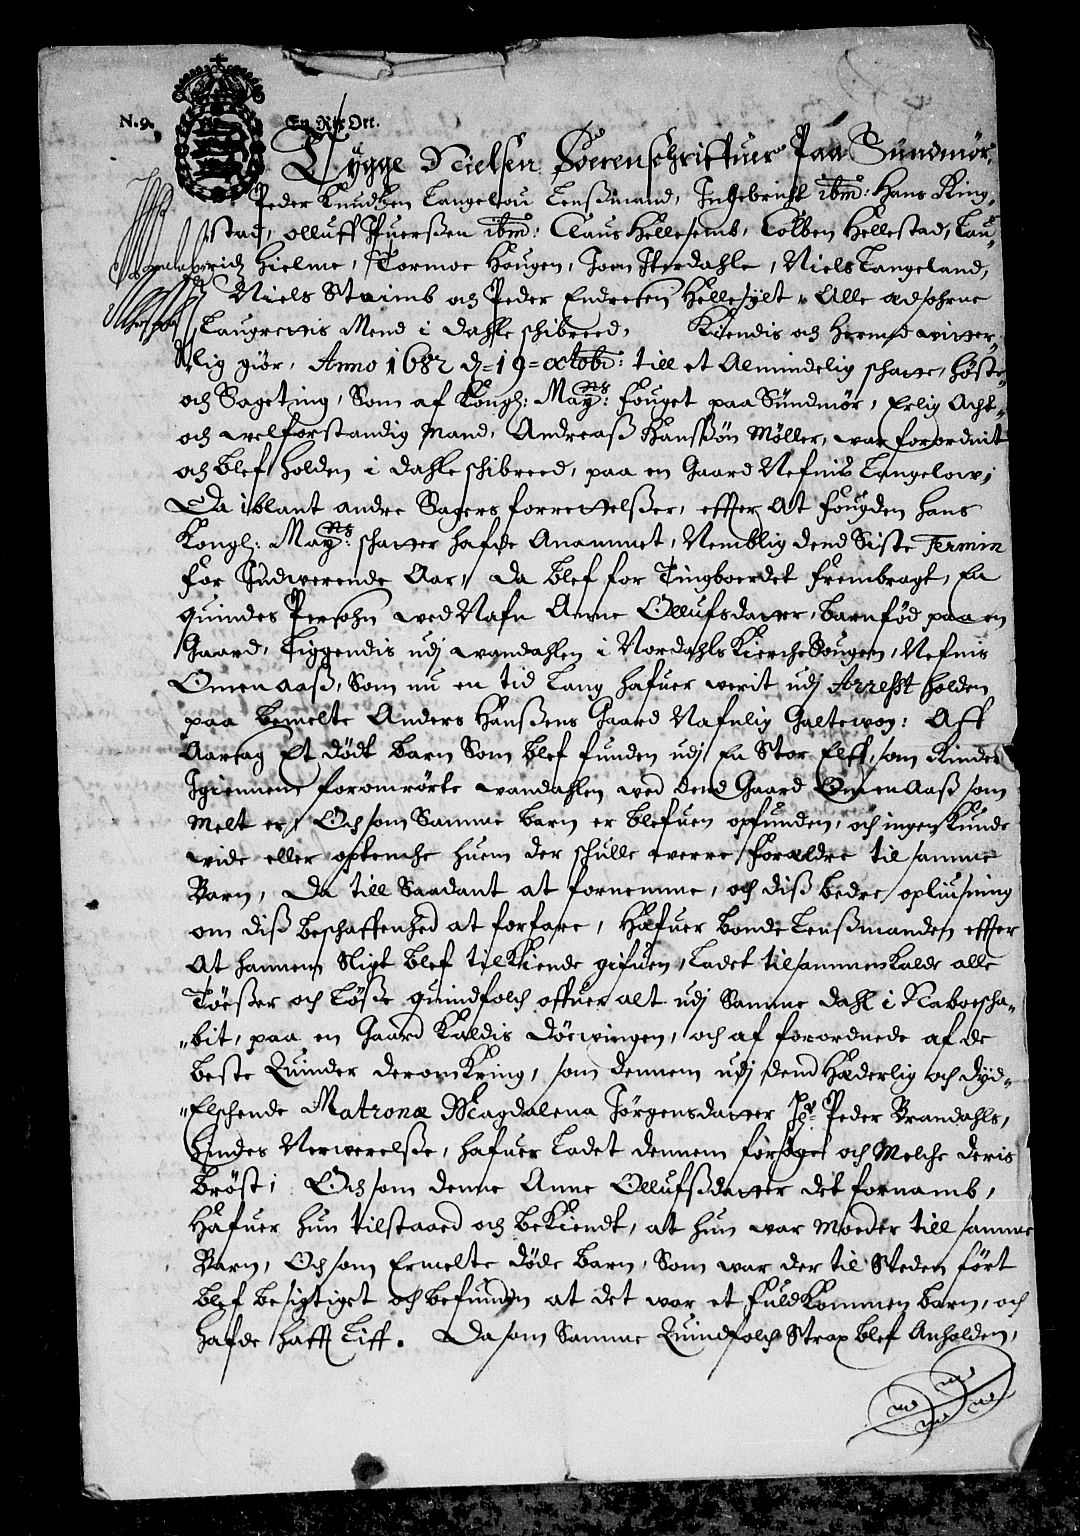 N. 9. En Rix Ort.
Tygge Nielsen Sorenschriffuer Paa Sundmør,
Peder Knudtzen Langelou Lensßmand, Ingebricht ibm: Hans Ring,,
stad, Olluff Iuerßen ibm: Claus Hellesemb, Colben Hellestad, Lau,,
ridz Hielme, Tormoe Hougen, Joen Sterdahle, Niels Langeland,
Niels Strimb och Peder Endresen Hellesylt, Alle Edsohrne
Laugrettis Mend i Dahle schibreed, Kiendis och hermed witter,,
lig giør, Anno 1682 d= 19= octobr: till et Almindelig schatte, høste
och Sageting, Som af Kongl: May:ts fouget paa Sundmør, Erlig Acht,,
och welforstandig Mand, Andreaß Hanßøn Møller, war forordnit
och blef holden i Dahle schibreed, paa en Gaard Nefnis Langelow,
Da iblant andre Sagers forrettelßer, effter At fougden hans
Kongl: May:ts schatter hafde Anammet, Nemblig dend Siste Termin
for Indwerende Aar, da blef for Tingboerdet frembragt, En
quindes Persohn wed Nafn Anne Ollufsdatter, barnfød paa en
Gaard, Liggendis udj wandahlen i Nordahls Kierche Sougen, Nefnis
Omenaaß, Som nu en tid lang hafuer werit udj Arresst holden
paa bemelte Anders Hanßens Gaard Nafnlig Galtewog: Aff
Aarsag Et dødt barn Som blef funden udj En Stor Elff, som Rindes
Igiennem foromrørte wandahlen wed dend Gaard Omenaaß som
melt er, Och som Samme barn er blefuen opfunden, och ingen Kunde
wide eller optenche huem der schulle werre forældre til samme
Barn, Da till Saadant at fornemme, och diß bedre opliusning
om diß beschaffenhed at forfare, Hafuer bonde Lensßmanden effter
At hannem Sligt blef tilKiende gifuen, Ladet tilsammenkalde alle
Tøeßer och Løße quindfolch offuer alt udj Samme dahl i Naboescha,,
,,bit, paa en Gaard Kaldis Døewingen, och af forordnede af de
beste Quinder deromKring, som dennem udj dend Hæderlig och dyd,,
,,Elschende Matrona Magdalena Jørgensdatter Hr Peder Brandahls,
hindes Nerwerelße, hafuer Ladet dennem forsøge och Melche deris
brøst, Och som denne Anne Ollufsdatter det fornamb,
Hafuer hun tilstaaed och beKiendt, at hun war Moeder till samme
Barn, Och som Ermelte døde barn, Som war der til Steden ført
blef besigtiget och befunden at det war et fuldKommen barn, och
hafde hafft Liff. Da som Samme Quindfolch Strax blef Anholden,